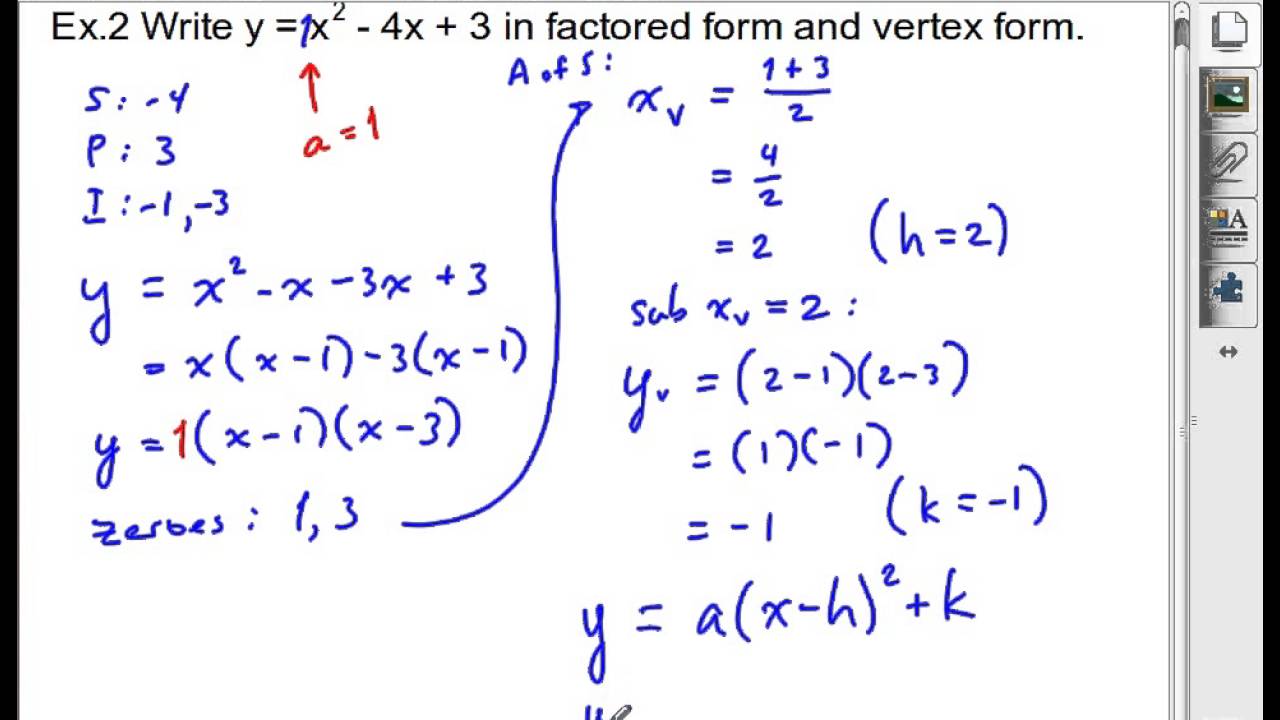 Ex.2 Write y = 1x² - 4x + 3 in factored form and vertex form.
S: -4
P: 3
I: -1, -3
a = 1
y = x² - x - 3x + 3
= x(x - 1) - 3(x - 1)
y = 1(x - 1)(x - 3)
zeroes: 1, 3
A of S:
x_v = (1 + 3)/2
= 4/2
= 2 (h = 2)
sub x_v = 2:
y_v = (2 - 1)(2 - 3)
= (1)(-1)
= -1 (k = -1)
y = a(x - h)² + k
A